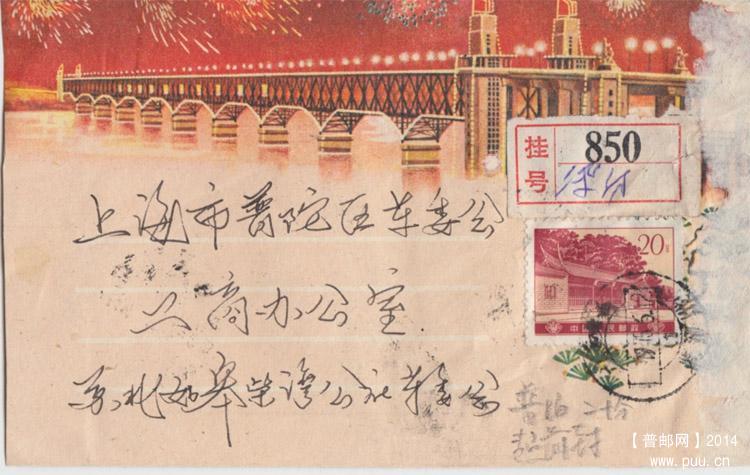 挂号
850
20分
中国人民邮政
上海市普陀区革委会
工商办公室
苏北如皋柴湾公社革委会
【普邮网】2014
www.puu.cn